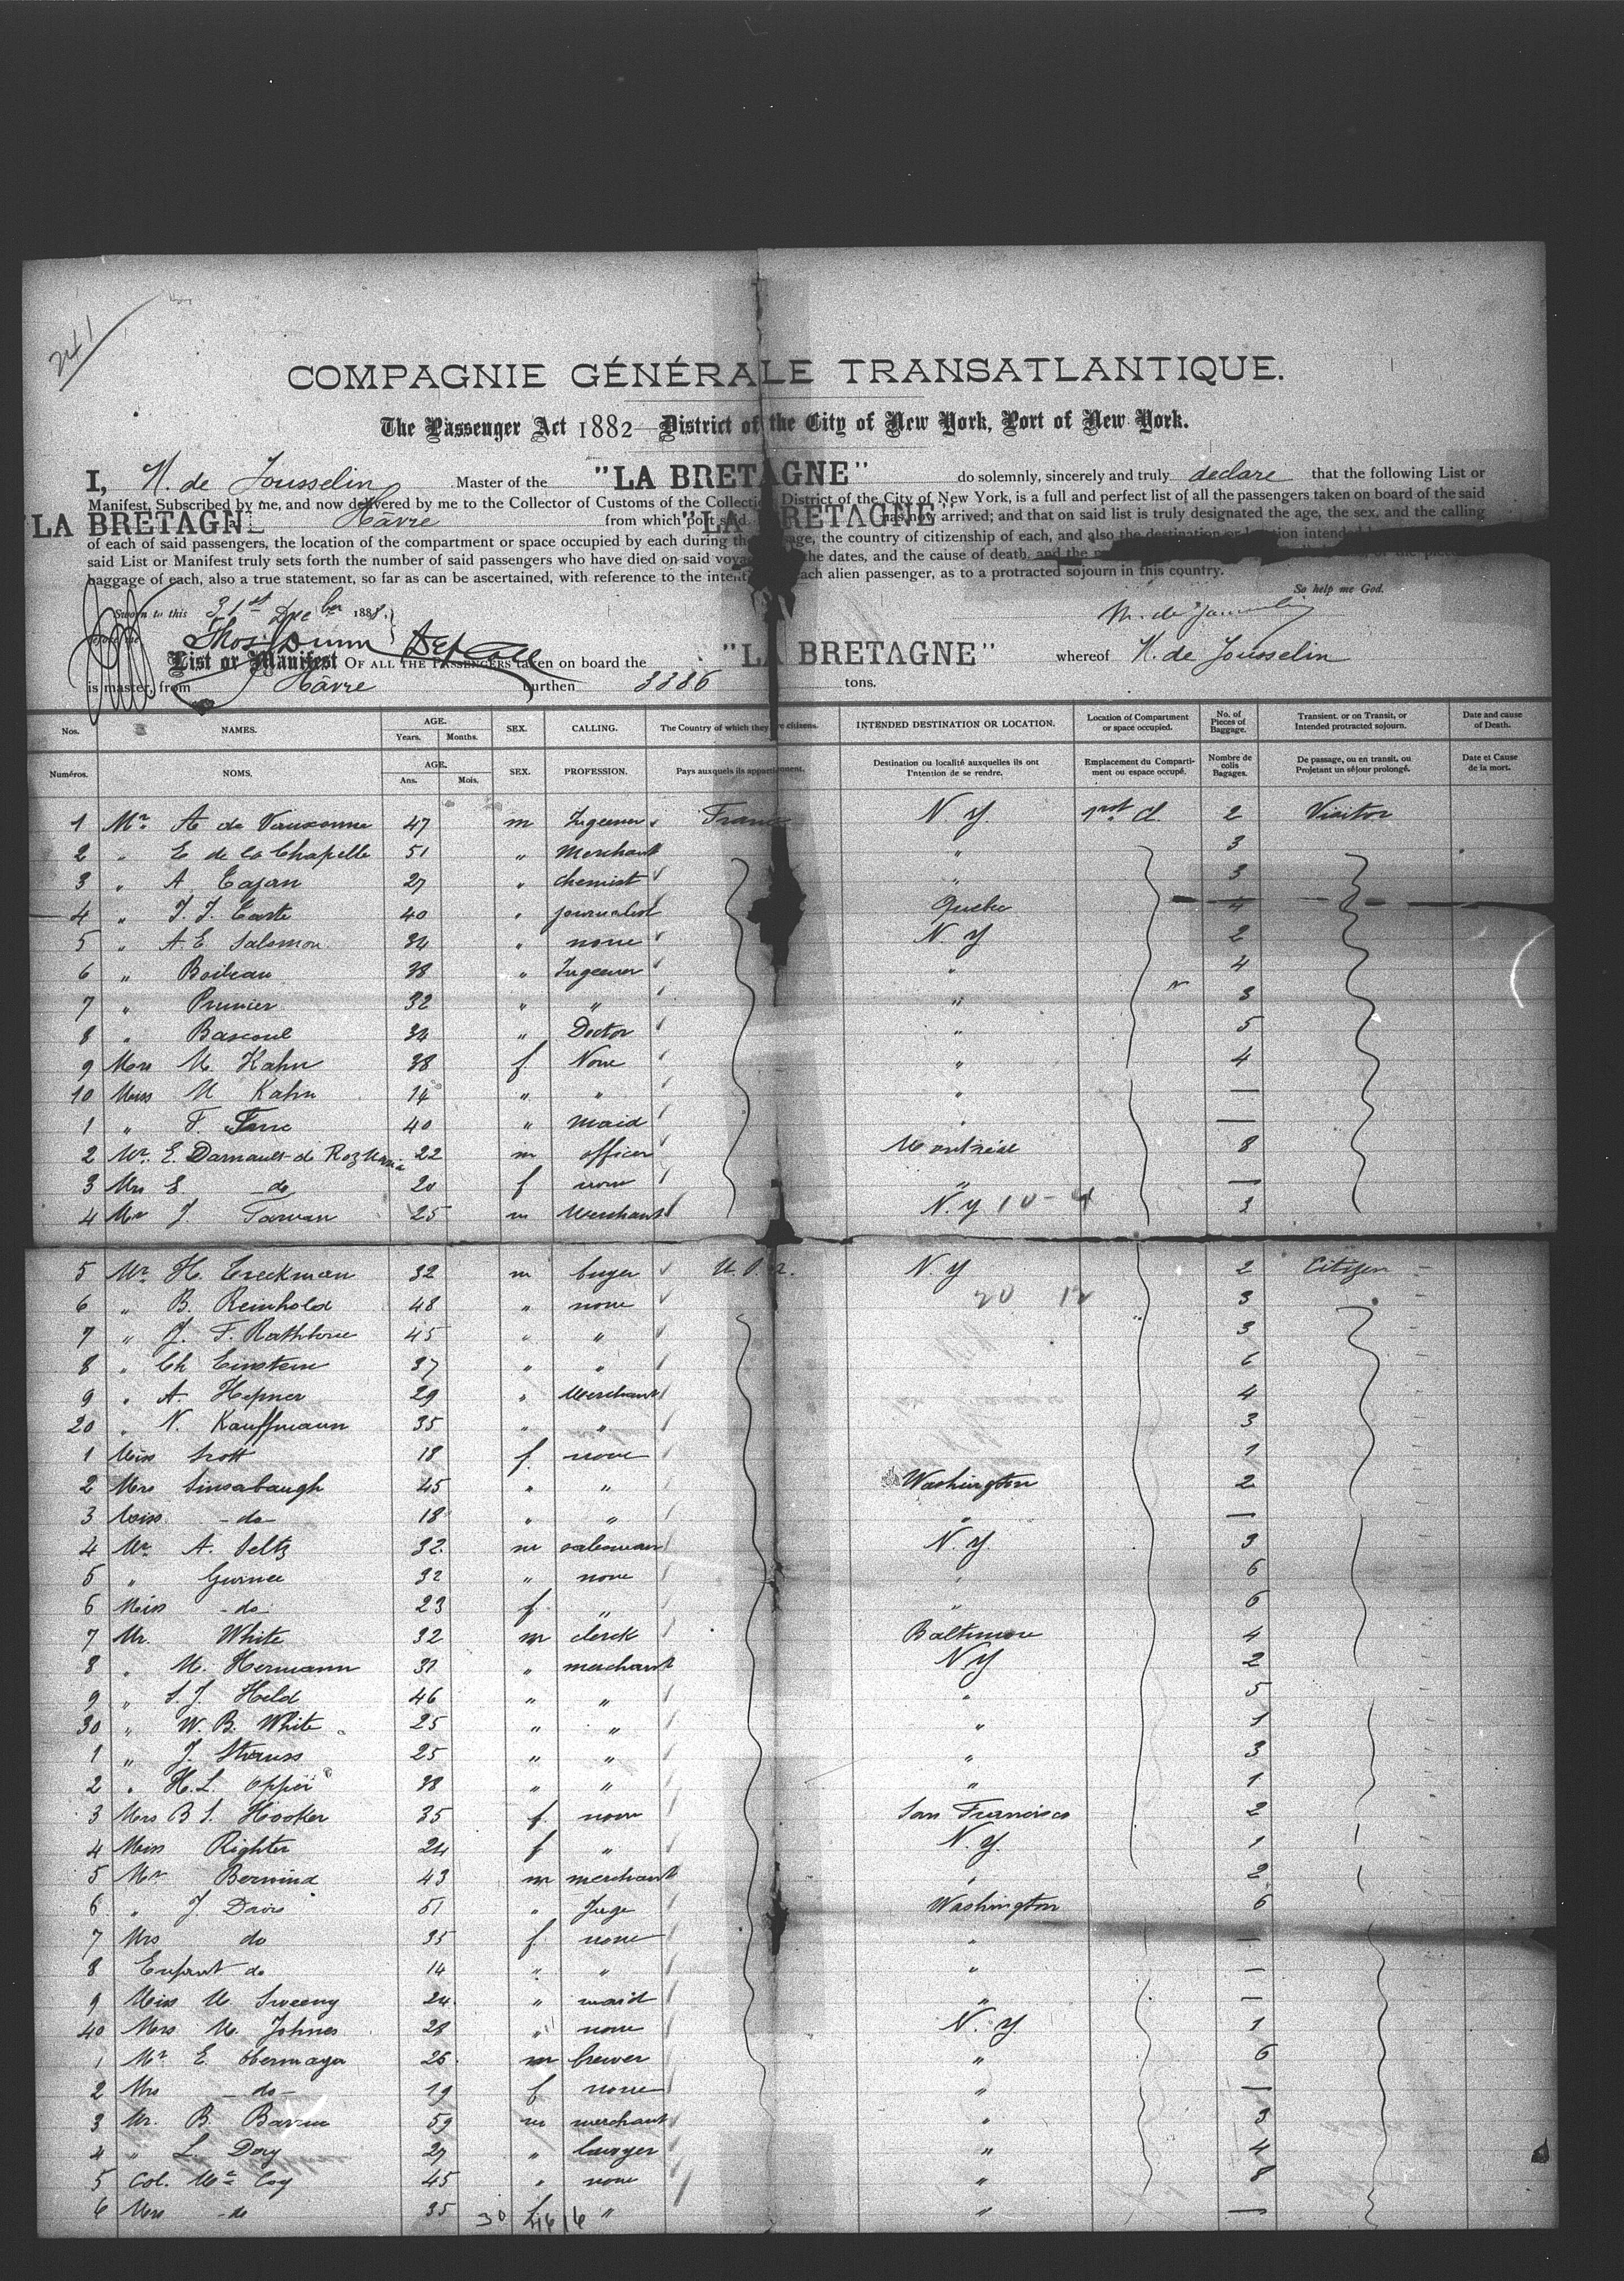 241
COMPAGNIE GÉNÉRALE TRANSATLANTIQUE.
The Passenger Act 1882 District of the City of New York, Port of New York.
I, N. de Jousselin Master of the "LA BRETAGNE" do solemnly, sincerely and truly declare that the following List or
Manifest, Subscribed by me, and now delivered by me to the Collector of Customs of the Collection District of the City of New York, is a full and perfect list of all the passengers taken on board of the said
"LA BRETAGNE Hâvre from which port said "LA BRETAGNE" has now arrived; and that on said list is truly designated the age, the sex, and the calling
of each of said passengers, the location of the compartment or space occupied by each during the age, the country of citizenship of each, and also the destination or location intended
said List or Manifest truly sets forth the number of said passengers who have died on said voyage the dates, and the cause of death, and the
baggage of each, also a true statement, so far as can be ascertained, with reference to the intent each alien passenger, as to a protracted sojourn in this country.
So help me God.
Sworn to this 31st Decber 188
before me
List or Manifest OF ALL THE PASSENGERS taken on board the "LA BRETAGNE" whereof N. de Jousselin
is master, from Hâvre burthen 3386 tons.
Nos. NAMES. AGE. Years. Months. SEX. CALLING. The Country of which they are citizens. INTENDED DESTINATION OR LOCATION. Location of Compartment or space occupied. No. of Pieces of Baggage. Transient. or on Transit, or Intended protracted sojourn. Date and cause of Death.
Numéros. NOMS. AGE. Ans. Mois. SEX. PROFESSION. Pays auxquels ils appartiennent. Destination ou localité auxquelles ils ont l'Intention de se rendre. Emplacement du Compartiment ou espace occupé. Nombre de colis Bagages. De passage, ou en transit, ou Projetant un séjour prolongé. Date et Cause de la mort.
1 Mr A de Vauxonne 47 m Ingeener France N Y. 1rst cl. 2 Visitor
2 " E de la Chapelle 51 " Merchant " 3
3 " A Cajan 27 " chemist " 3
4 " J. J. Carte 40 " journalist Quebec 4
5 " A. E Salomon 34 " none N. Y 2
6 " Boileau 38 " Ingeener " 4
7 " Prunier 32 " " " 3
8 " Bascoul 34 " Doctor " 5
9 Mrs M. Kahn 38 f None " 4
10 Miss M Kahn 14 " " " —
1 " F. 40 " maid " —
2 Mr. E. Darnault de 22 m officer Montreal 8
3 Mrs E do 20 f none " —
4 Mr J. Tarvan 25 m Merchant N. Y 10 - 4 3
5 Mr H. Creekman 32 m buyer U. S. a. N. Y 2 Citizen
6 " B. Reinhold 48 " none 20 12 3
7 " J. F. Rathbone 45 " " 3
8 " Ch Einstein 37 " " 6
9 " A. Hepner 29 " Merchant 4
20 " N. Kauffmann 35 " " 3
1 Miss Srott 18 f. none 1
2 Mrs Sinsabaugh 45 " " Washington 2
3 Miss - do - 18 " " " —
4 Mr. A. Seltz 32 m salesman N. Y. 3
5 " Guinee 32 " none " 6
6 Miss - do - 23 f. " " 6
7 Mr. White 32 m clerck Baltimore 4
8 " M. Hermann 32 " merchant N Y 2
9 " S. J. Held 46 " " " 5
30 " W. B. White 25 " " " 1
1 " J. Strauss 25 " " " 3
2 " H. L. Opper 38 " " " 1
3 Mrs B S. Hooker 35 f none San Francisco 2
4 Miss Righter 24 f " N. Y. 1
5 Mr Berwind 43 m merchant " 2
6 " J. Davis 51 " Juge Washington 6
7 Mrs do 35 f none " —
8 Enfant do 14 " " " —
9 Miss M Sweeny 24 " maid " —
40 Mrs M. Johnes 28 " none N. Y 1
1 Mr E. Obermayer 25 m brewer " 6
2 Mrs - do - 19 f none " —
3 Mr. B. 59 m merchant " 3
4 " L. Dory 27 " lawyer " 4
5 Col. Mc Coy 45 " none " 8
6 Mrs - do 35 f " " —
30 16